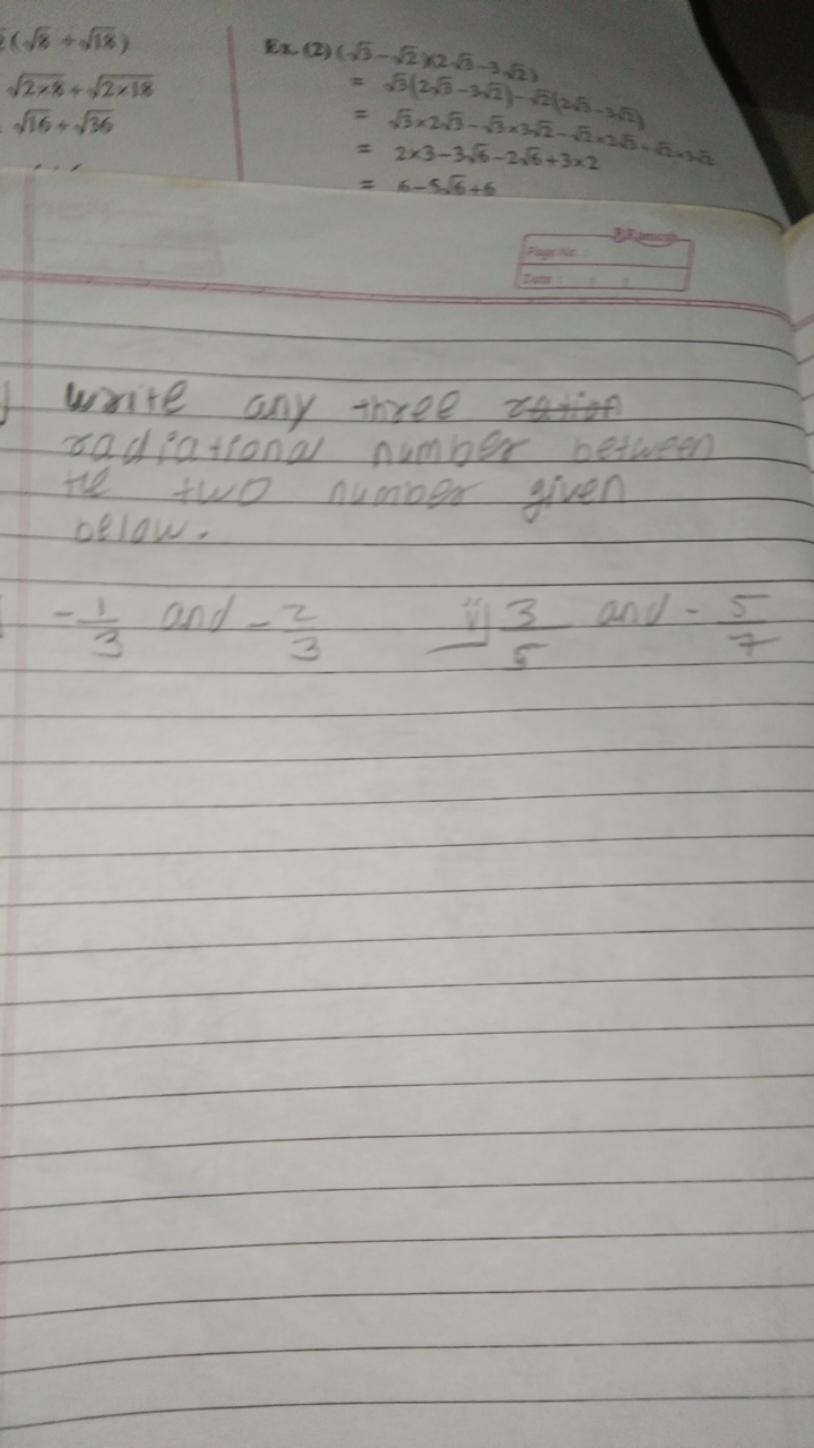 (√8 + √18)
√2×8 + √2×18
√16 + √36
Ex. (2) (√3 − √2)(2√3 − 3√2)
= √3(2√3 − 3√2) − √2(2√3 − 3√2)
= √3×2√3 − √3×3√2 − √2×2√3 + √2×3√2
= 2×3 − 3√6 − 2√6 + 3×2
= 6 − 5√6 + 6
Page No. :
Date :
write any three ration
radiational number between
the two number given
below.
-1/3 and -2/3 ii) 3/5 and - 5/7